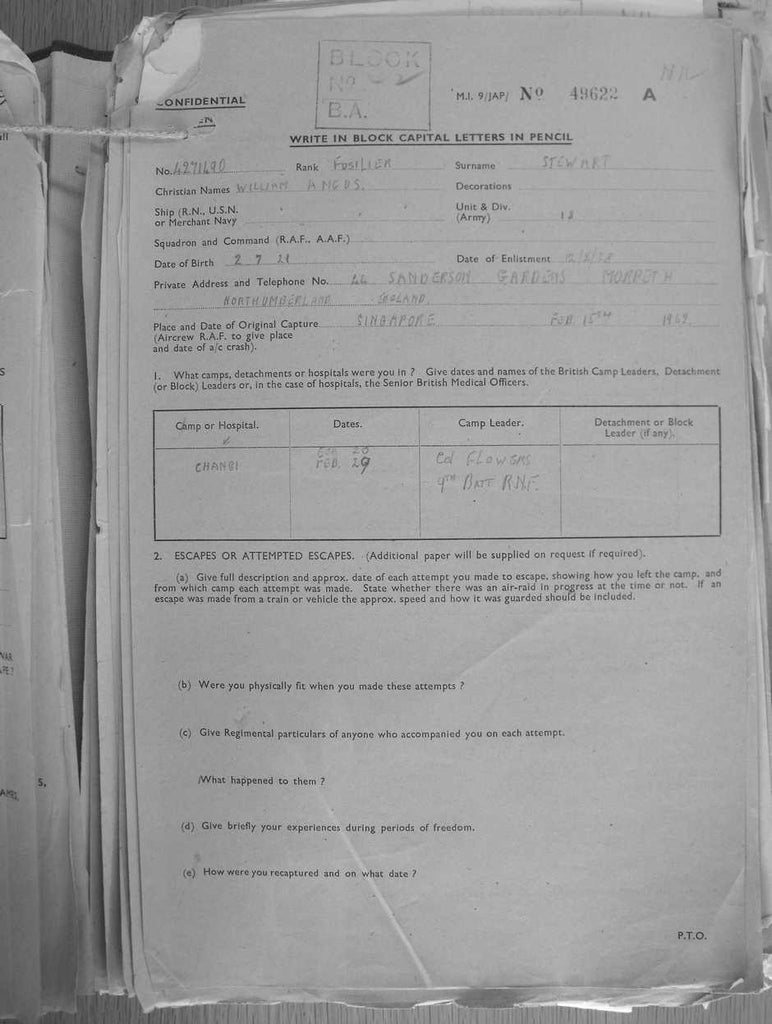 BLOCK
No 2
B.A.
NIL
M.I. 9/JAP/ No 49622 A
CONFIDENTIAL
WRITE IN BLOCK CAPITAL LETTERS IN PENCIL
No. 4271490 Rank FUSILIER Surname STEWART
Christian Names WILLIAM ANGUS. Decorations
Ship (R.N., U.S.N. or Merchant Navy
Unit & Div. (Army) 18
Squadron and Command (R.A.F., A.A.F.)
Date of Birth 2 7 21 Date of Enlistment
Private Address and Telephone No. SANDERSON GARDENS MORPETH
NORTHUMBERLAND ENGLAND.
Place and Date of Original Capture SINGAPORE FEB. 15TH 1942.
(Aircrew R.A.F. to give place
and date of a/c crash).
1. What camps, detachments or hospitals were you in ? Give dates and names of the British Camp Leaders, Detachment
(or Block) Leaders or, in the case of hospitals, the Senior British Medical Officers.
Camp or Hospital. Dates. Camp Leader. Detachment or Block Leader (if any).
CHANGI FEB. 29 Col FLOWERS
9TH BATT R.N.F.
2. ESCAPES OR ATTEMPTED ESCAPES. (Additional paper will be supplied on request if required).
(a) Give full description and approx. date of each attempt you made to escape, showing how you left the camp, and
from which camp each attempt was made. State whether there was an air-raid in progress at the time or not. If an
escape was made from a train or vehicle the approx. speed and how it was guarded should be included.
(b) Were you physically fit when you made these attempts ?
(c) Give Regimental particulars of anyone who accompanied you on each attempt.
What happened to them ?
(d) Give briefly your experiences during periods of freedom.
(e) How were you recaptured and on what date ?
P.T.O.
5.